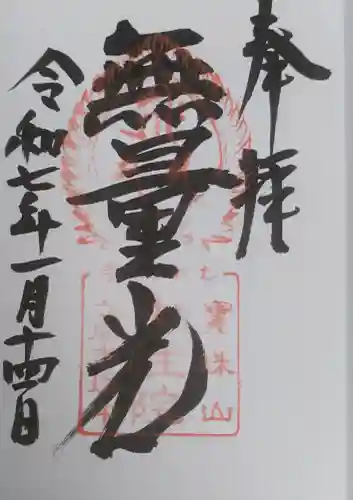 奉拝
無量光
令和七年一月十四日
寳珠山